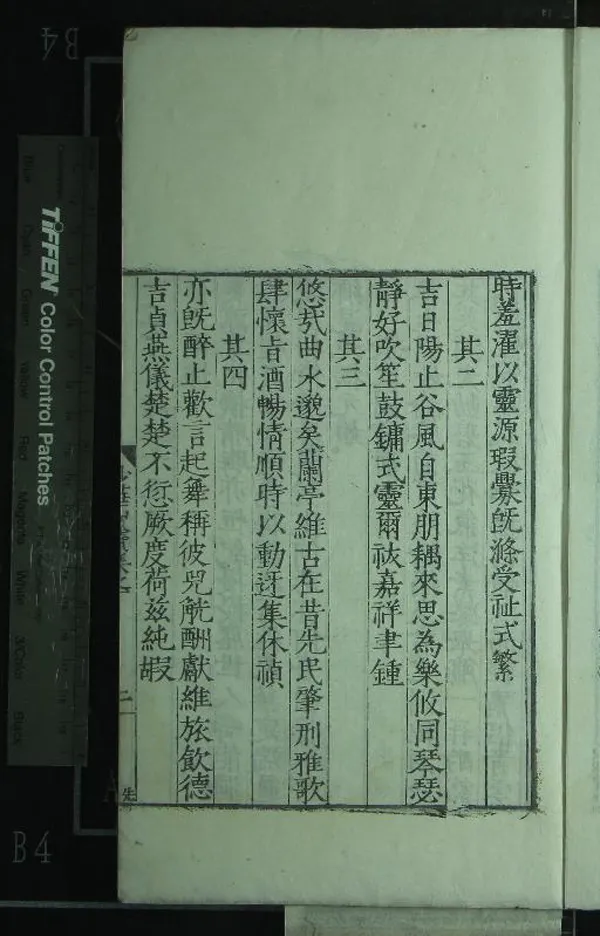 時羞濯以靈源瑕釁旣滌受祉式繁
其二
吉日陽止谷風自東朋耦來思為樂攸同琴瑟
靜好吹笙鼓鏞式靈爾祓嘉祥聿鍾
其三
悠哉曲水邈矣蘭亭維古在昔先民肇刑雅歌
肆懷旨酒暢情順時以動迓集休禎
其四
亦旣醉止歡言起舞稱彼兕觥酬獻維旅飲德
吉貞燕儀楚楚不愆厥度荷兹純嘏
二
TIFFEN Color Control Patches
Blue
Cyan
Green
Yellow
Red
Magenta
White
3/Color
Black
B4
B4